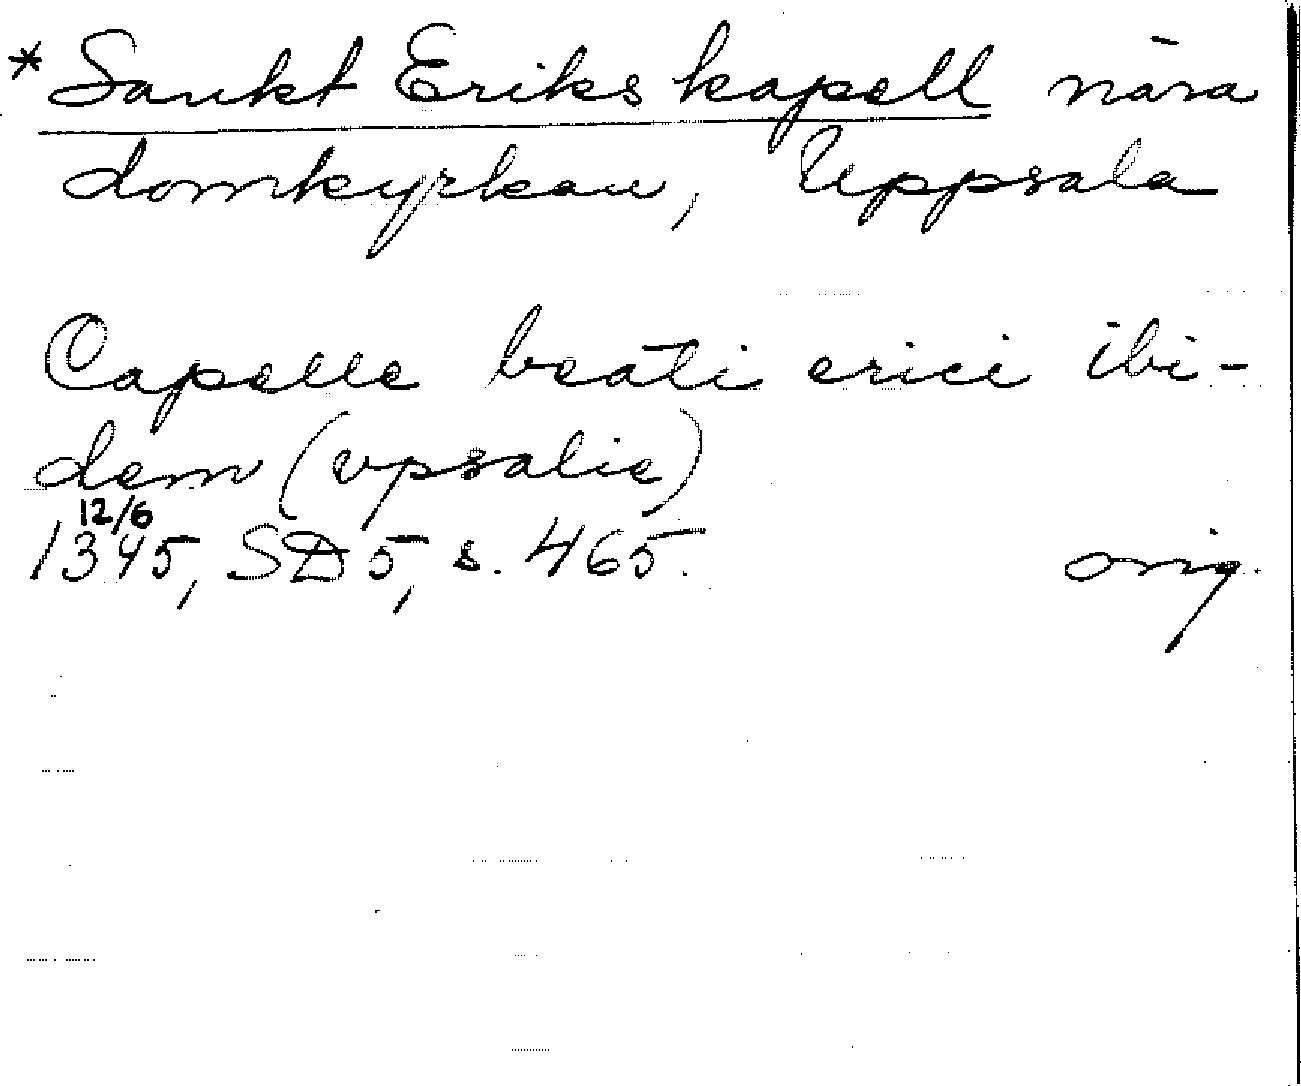 * Sankt Eriks kapell nära
domkyrkan, Uppsala
Capelle beati erici ibi-
dem (vpsalie)
12/6
1345, SD 5, s. 465. orig.